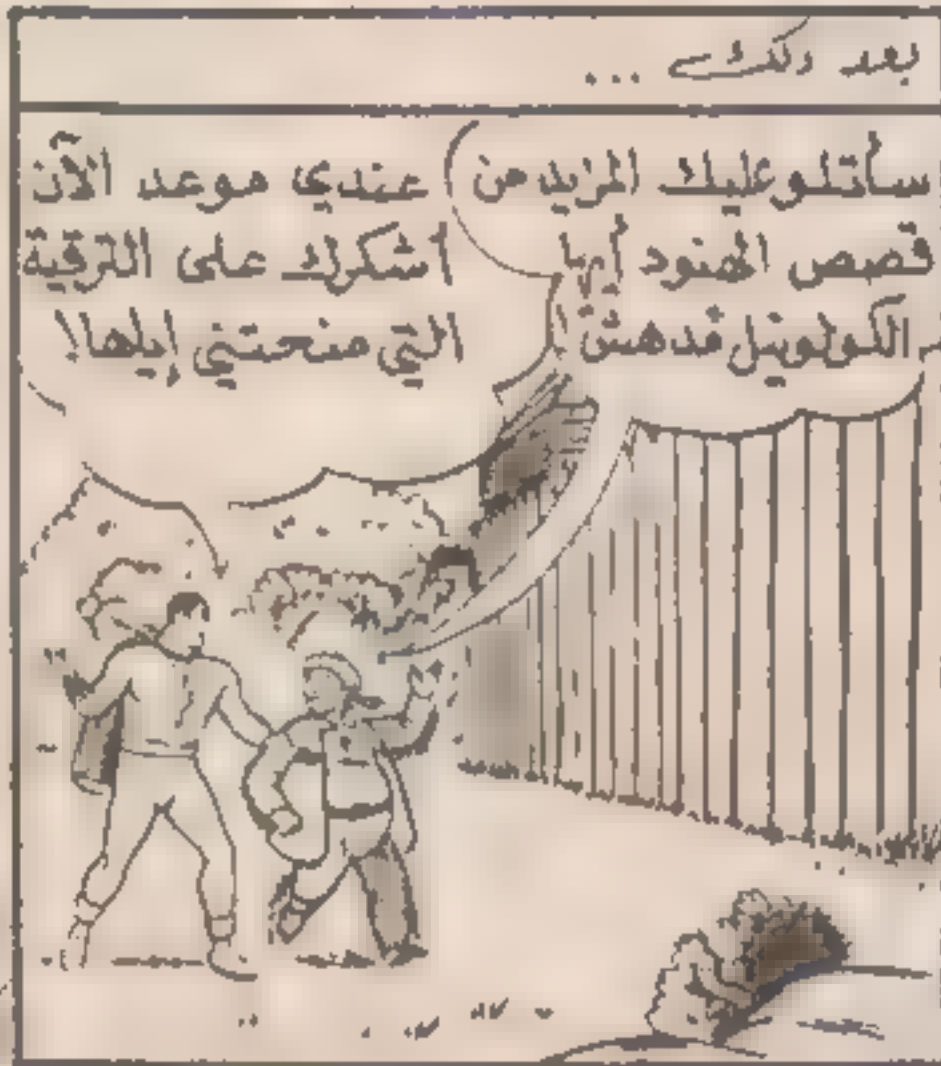 بعد ذلك ...
سأتلو عليك المزيد من
قصص الهنود أيها
الكولونيل مدهش!
عندي موعد الآن
أشكرك على الترقية
التي منحتني إياها!